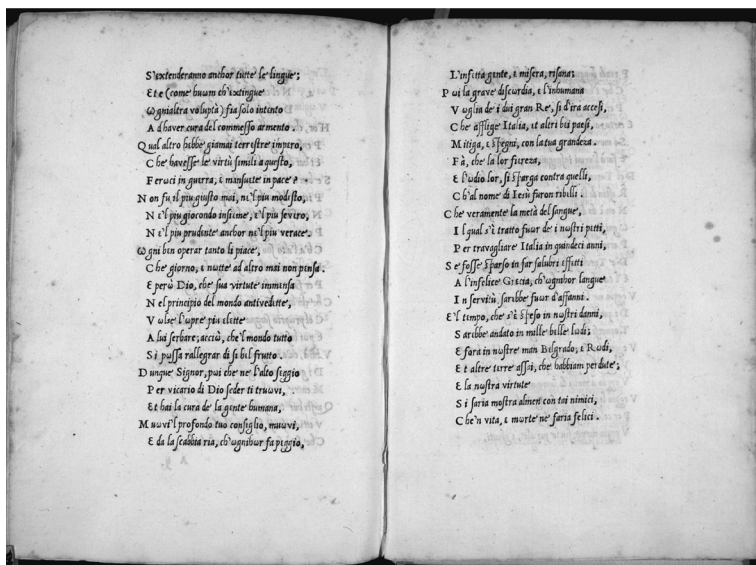 S'εxtenderanno anchor tutte le lingue;
Ε t e (come buωn ch'εxtingue
Ω gnialtra voluptà) fia solo intento
A d haver cura del commesso armento.
Q ual altro hεbbe giamai terrεstre impεro,
C he havesse le virtù simili a questo,
F erωci in guεrra, ε mansuεte in pace?
N on fu il più giusto mai, nε'l più modεsto,
N ε'l piu giocondo insiεme, ε'l piu sevεro,
N ε'l piu prudεnte anchor nε'l piu verace.
Ω gni bεn operar tanto li piace,
C he giorno, ε nωtte ad altro mai non pεnsa.
Ε però Dio, che sua virtute immεnsa
N el principio del mondo antivedette,
V ωlse l'ωpre piu elεtte
A lui serbare; acciò, che'l mondo tutto
S i pωssa rallegrar di sì bεl frutto.
D unque Signor, pωi che ne l'alto sεggio
P er vicario di Dio seder ti truωvi,
Ε t hai la cura de la gεnte humana,
M uωvi'l profondo tuo consiglio, muωvi,
Ε da la scabbia ria, ch'ωgnihor fa pεggio,
L'infεtta gεnte, ε misera, risana;
P ωi la grave discωrdia, ε l'inhumana
V oglia de i dui gran Re, sì d'ira accesi,
C he afflige Italia, εt altri bεi paesi,
M itiga, ε spεgni, con la tua grandeza.
F à, che la lor fierεza,
Ε l'ωdio lor, si sparga contra quelli,
C h'al nome di Iesù furon ribεlli.
C he veramente la metà del sangue,
I l qual s'ε tratto fuωr de i nωstri pεtti,
P er travagliare Italia in quindeci anni,
S e fosse sparso in far salubri εffεtti
A l'infelice Grεcia, ch'ωgnihor langue
I n servitù, sarεbbe fuωr d'affanni.
Ε 'l tεmpo, che s'ε speso in nωstri danni,
S arεbbe andato in mille bεlle lωdi;
Ε fora in nωstre man Belgrado, ε Rωdi,
Ε t altre tεrre assai, che habbiam perdute;
Ε la nωstra virtute
S i saria mostra almen con tai nimici,
C he'n vita, ε mωrte ne faria felici.